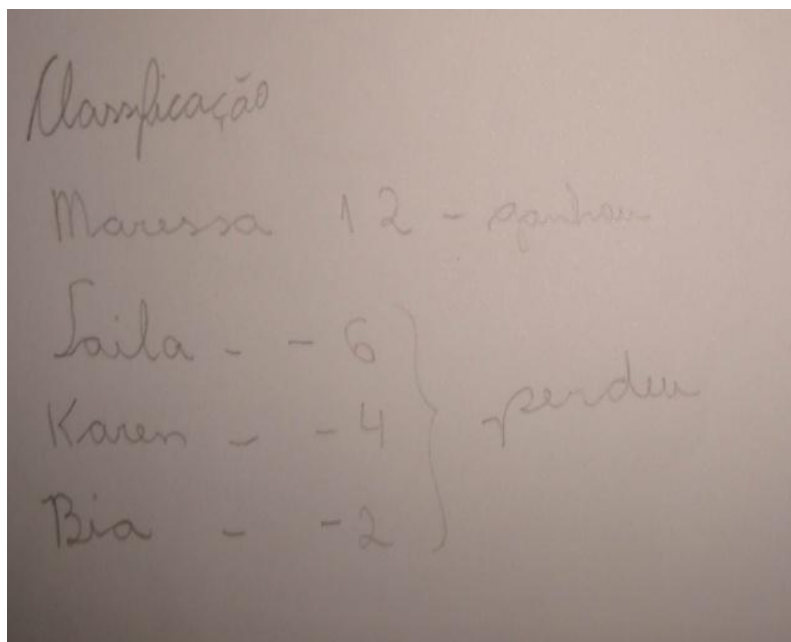 Classificação
Maressa 12 - ganhou
Laila - - 6
Karen - - 4
Bia - - 2
perdeu